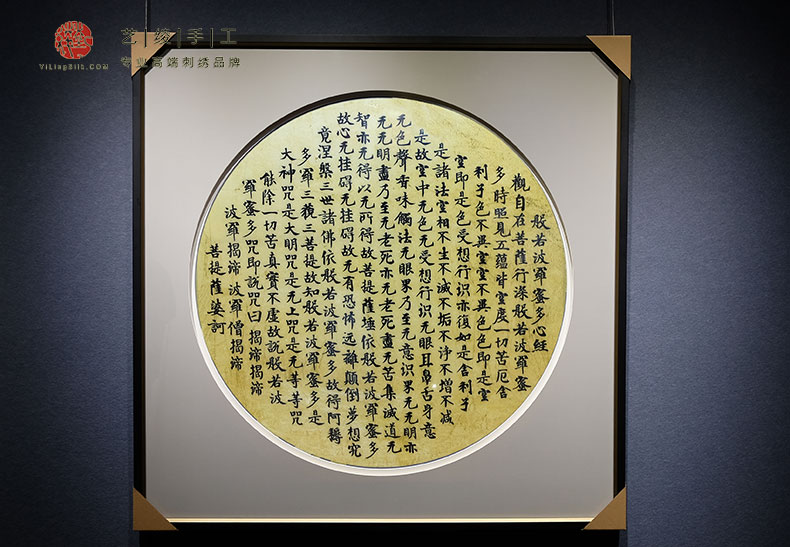 艺|绫|手|工
专业高端刺绣品牌
YiLingSilk.COM
般若波羅蜜多心経
觀自在菩薩行深般若波羅蜜
多時照見五蘊皆空度一切苦厄舍
利子色不異空空不異色色即是空
空即是色受想行識亦復如是舍利子
是諸法空相不生不滅不垢不净不增不减
是故空中无色无受想行識无眼耳鼻舌身意
无色聲香味觸法无眼界乃至无意識界无无明亦
无无明盡乃至无老死亦无老死盡无苦集滅道无
智亦无得以无所得故菩提薩埵依般若波羅蜜多
故心无挂碍无挂碍故无有恐怖远離顛倒夢想究
竟涅槃三世諸佛依般若波羅蜜多故得阿耨
多羅三藐三菩提故知般若波羅蜜多是
大神咒是大明咒是无上咒是无等等咒
能除一切苦真實不虛故説般若波
羅蜜多咒即説咒曰 揭諦揭諦
波羅揭諦 波羅僧揭諦
菩提薩婆訶